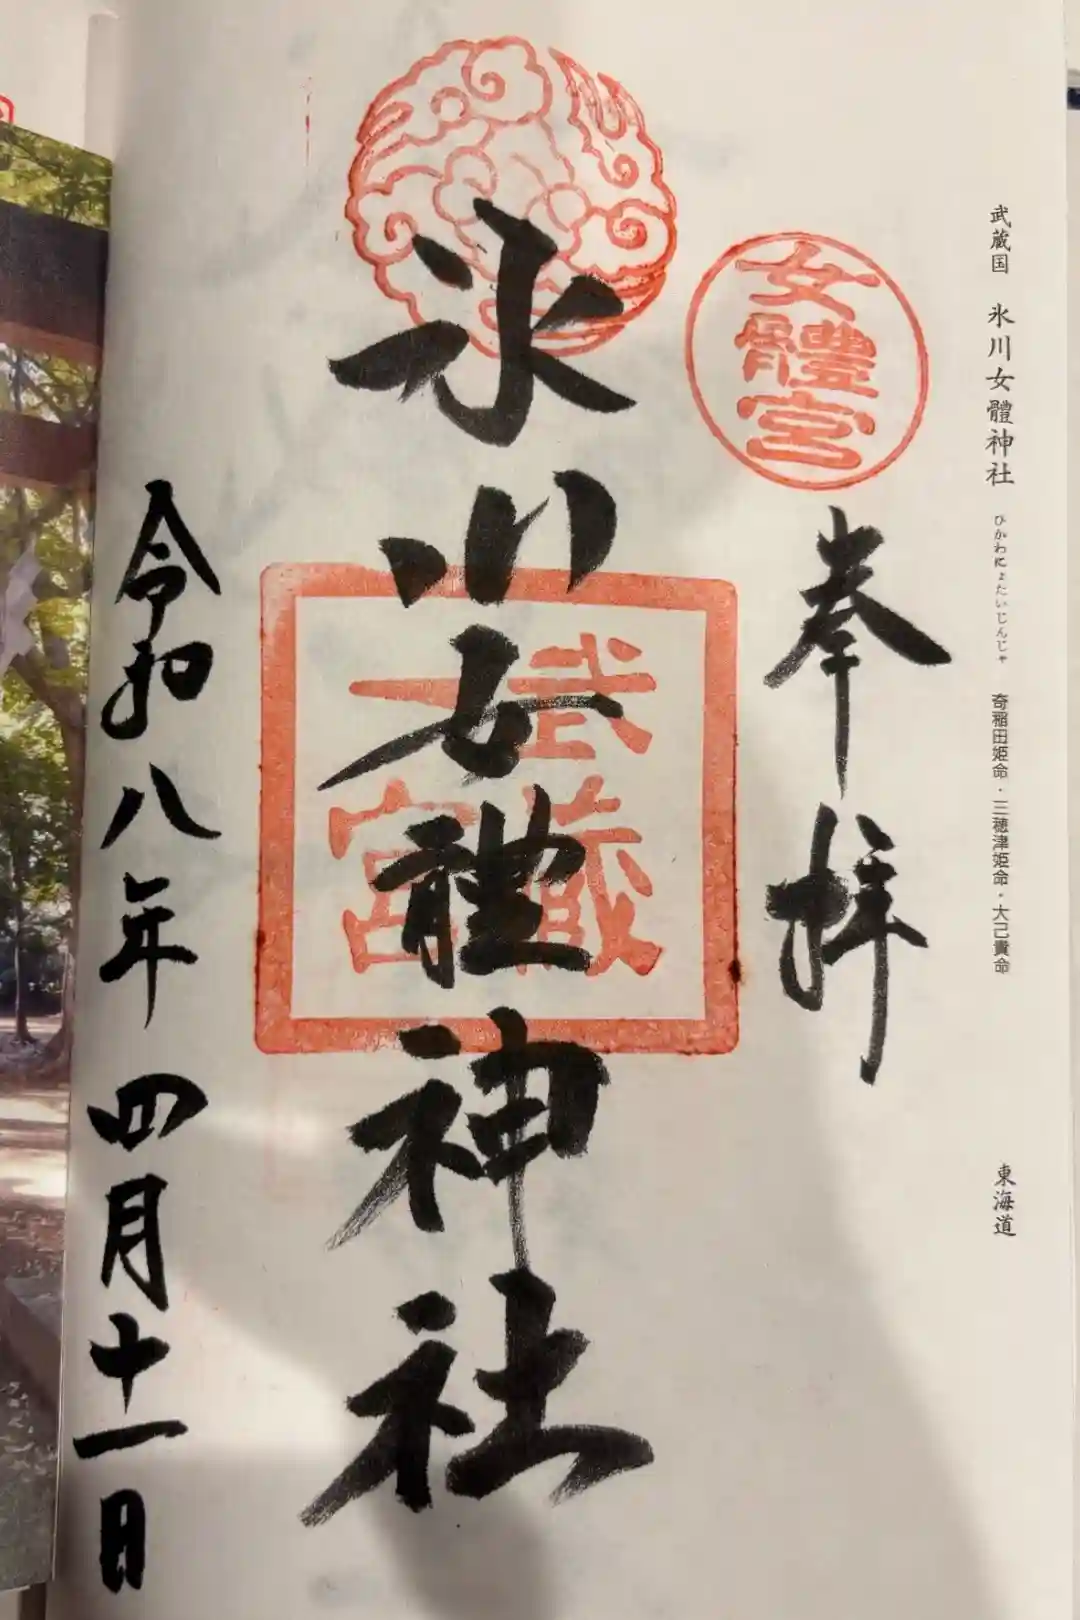 武蔵国　氷川女體神社　ひかわにょたいじんじゃ　奇稲田姫命・三穂津姫命・大己貴命　東海道
女體宮
奉拝
氷川女體神社
武蔵
一宮
令和八年四月十一日